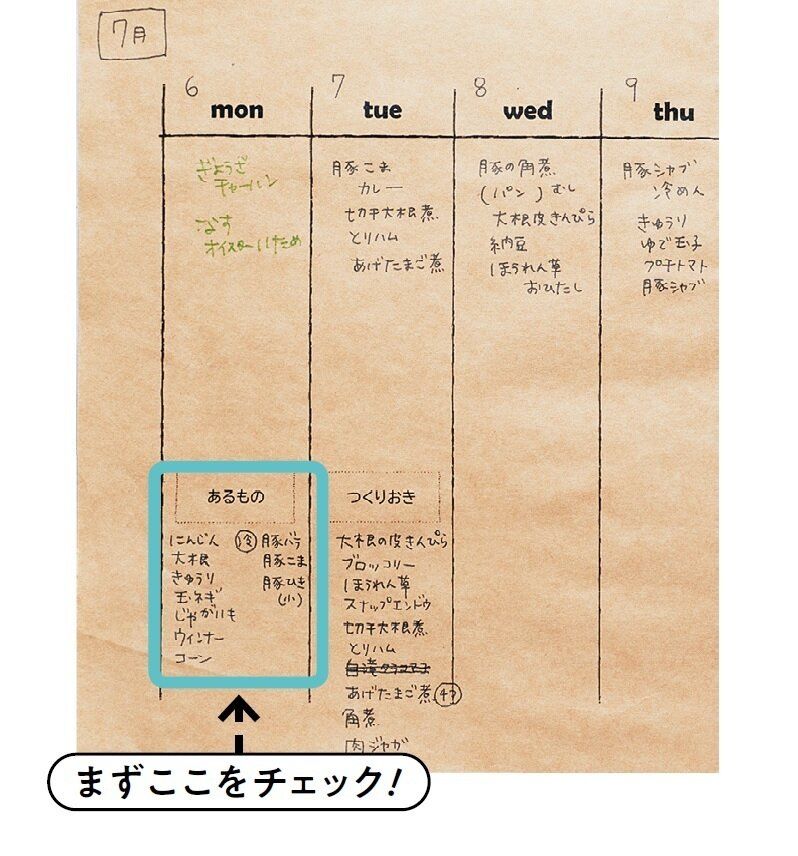 7月
6 mon
ぎょうざ
チャーハン
なす
オイスターいため
7 tue
豚こま
カレー
切干大根煮
とりハム
あげたまご煮
8 wed
豚の角煮
(パン)むし
大根皮きんぴら
納豆
ほうれん草
おひたし
9 thu
豚シャブ
冷めん
きゅうり
ゆで玉子
プチトマト
豚シャブ
あるもの
にんじん
大根
きゅうり
玉ネギ
じゃがいも
ウィンナー
コーン
冷 豚バラ
豚こま
豚ひき
(小)
つくりおき
大根の皮きんぴら
ブロッコリー
ほうれん草
スナップエンドウ
切干大根煮
とりハム
あげたまご煮
角煮
肉ジャガ
まずここをチェック!